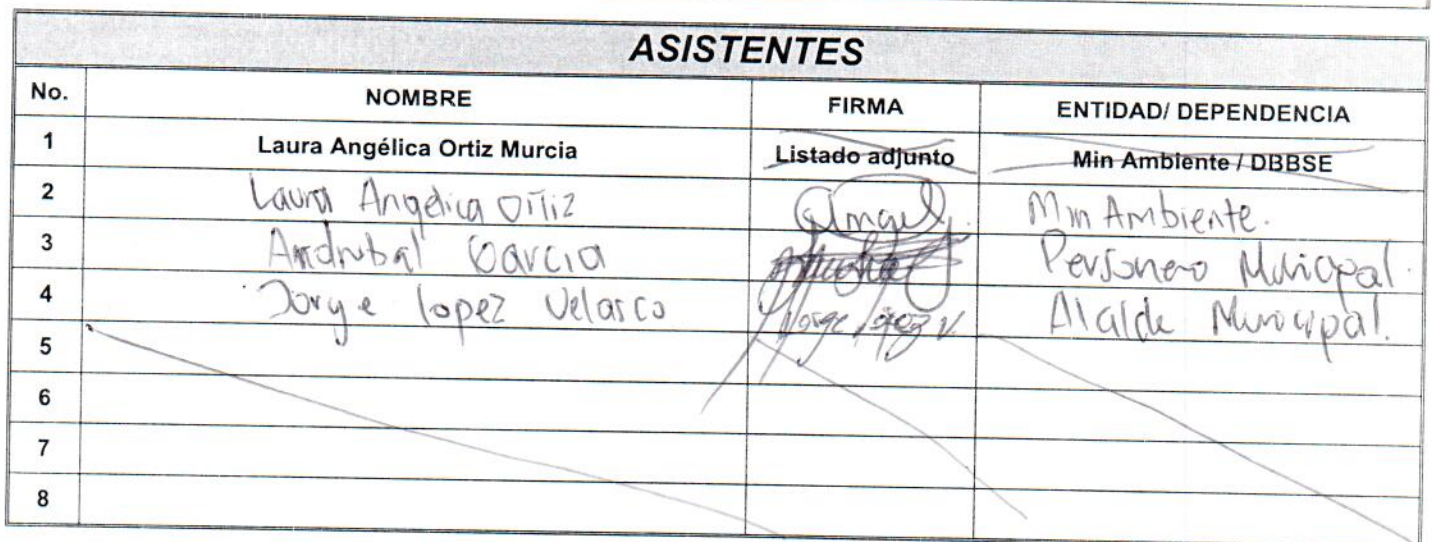 ASISTENTES
No. NOMBRE FIRMA ENTIDAD/ DEPENDENCIA
1 Laura Angélica Ortiz Murcia Listado adjunto Min Ambiente / DBBSE
2 Laura Angelica Ortiz Min Ambiente.
3 Garcia Personero Municipal.
4 Jorge lopez Velasco Jorge López V. Alcalde Municipal.
5
6
7
8